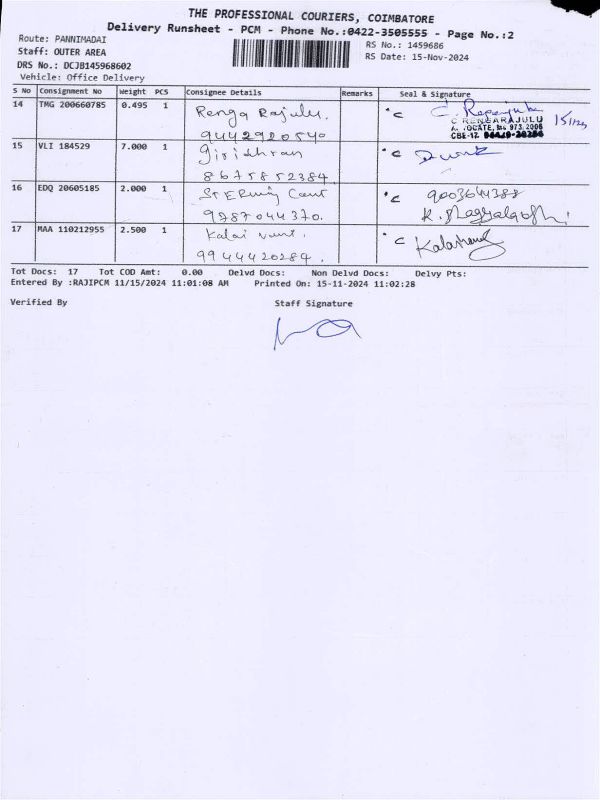 THE PROFESSIONAL COURIERS, COIMBATORE
Delivery Runsheet - PCM - Phone No.:0422-3505555 - Page No.:2
Route: PANNIMADAI
Staff: OUTER AREA
DRS No.: DCJB145968602
Vehicle: Office Delivery
RS No.: 1459686
RS Date: 15-Nov-2024
S No Consignment No Weight PCS Consignee Details Remarks Seal & Signature
14 TMG 200660785 0.495 1 Renga Rajulu.
9442920540
C RENGARAJULU
15 VLI 184529 7.000 1 giridhran
8675852384.
16 EDQ 20605185 2.000 1
9787044370.
9003644388
17 MAA 110212955 2.500 1 Kalai
9944420284.
Tot Docs: 17 Tot COD Amt: 0.00 Delvd Docs: Non Delvd Docs: Delvy Pts:
Entered By :RAJIPCM 11/15/2024 11:01:08 AM Printed On: 15-11-2024 11:02:28
Verified By Staff Signature